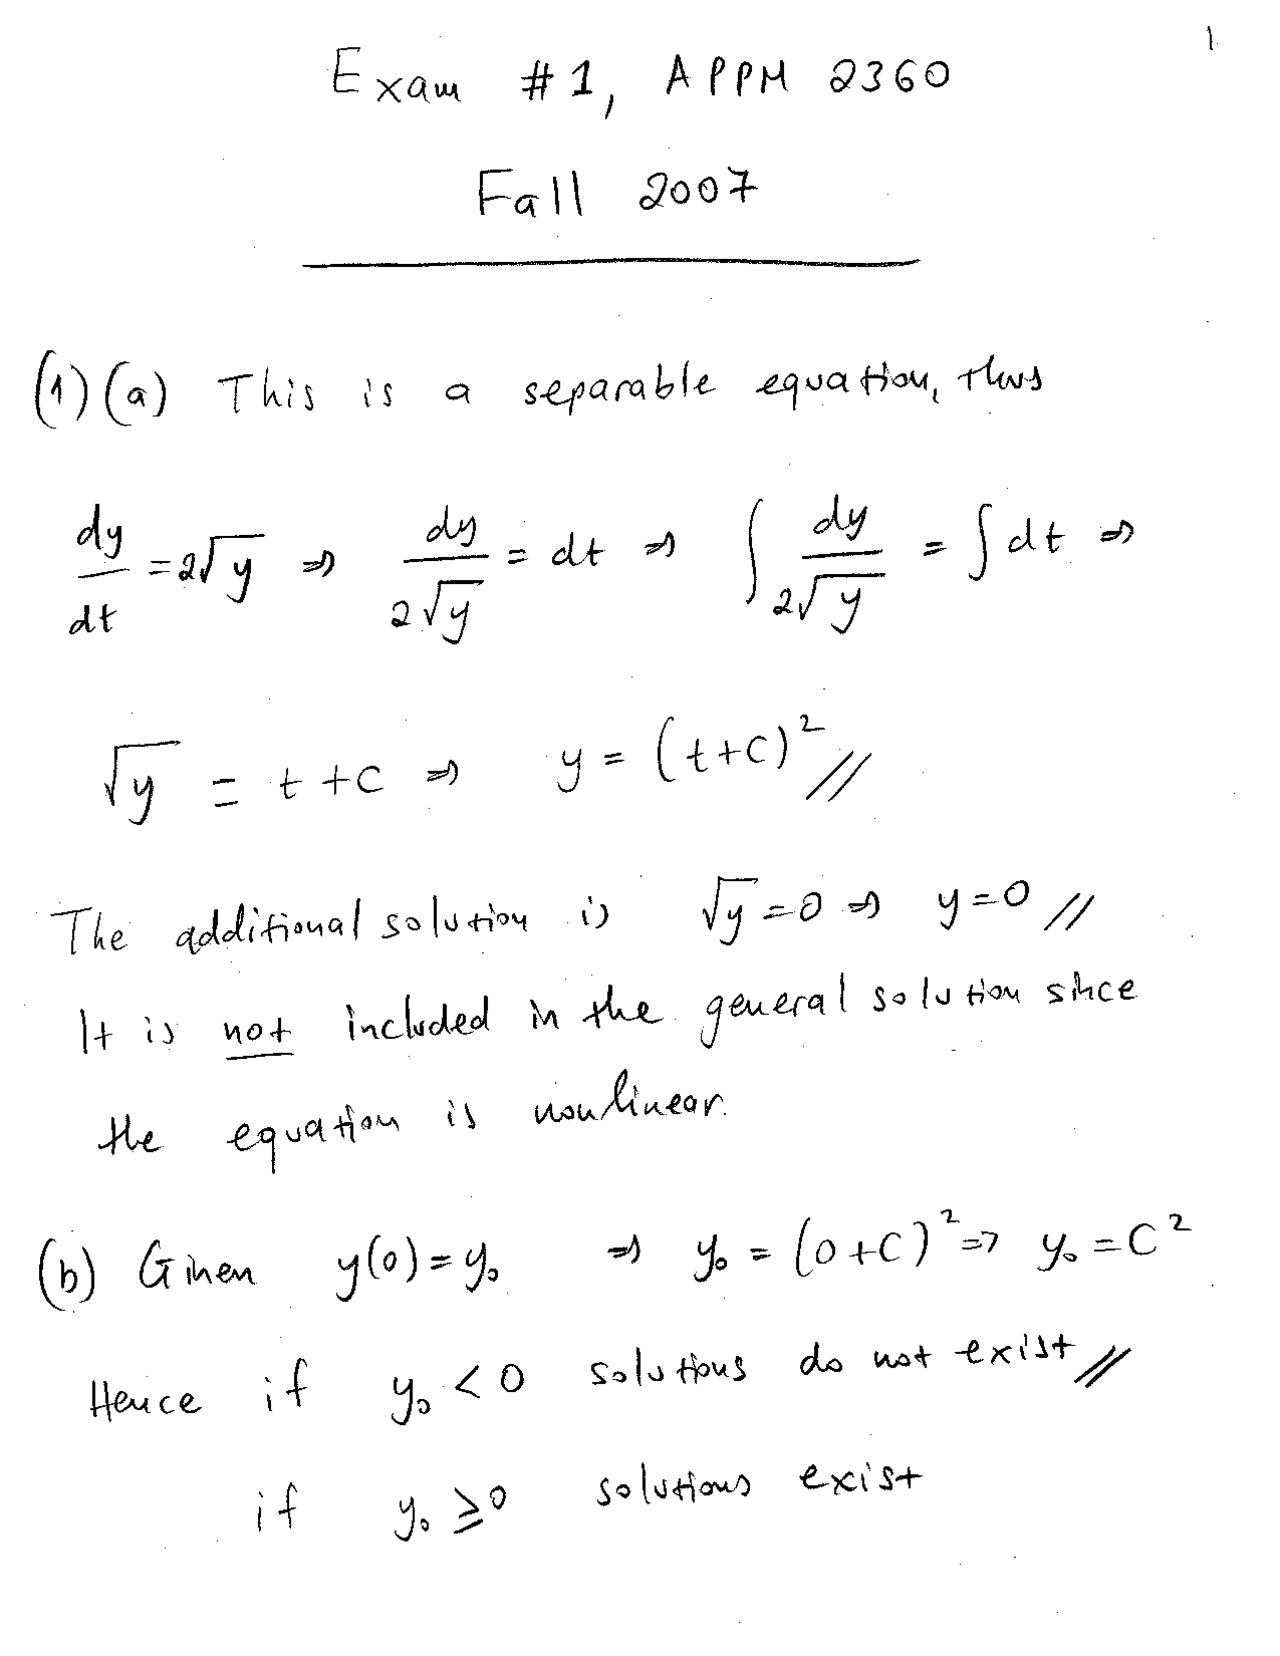 1
Exam #1, APPM 2360
Fall 2007
(1)(a) This is a separable equation, thus
dy/dt = 2√y ⇒ dy/(2√y) = dt ⇒ ∫ dy/(2√y) = ∫dt ⇒
√y = t+C ⇒ y = (t+C)² //
The additional solution is √y = 0 ⇒ y = 0 //
It is not included in the general solution since
the equation is nonlinear.
(b) Given y(0) = y₀ ⇒ y₀ = (0+C)² ⇒ y₀ = C²
Hence if y₀ < 0 solutions do not exist //
if y₀ ≥ 0 solutions exist